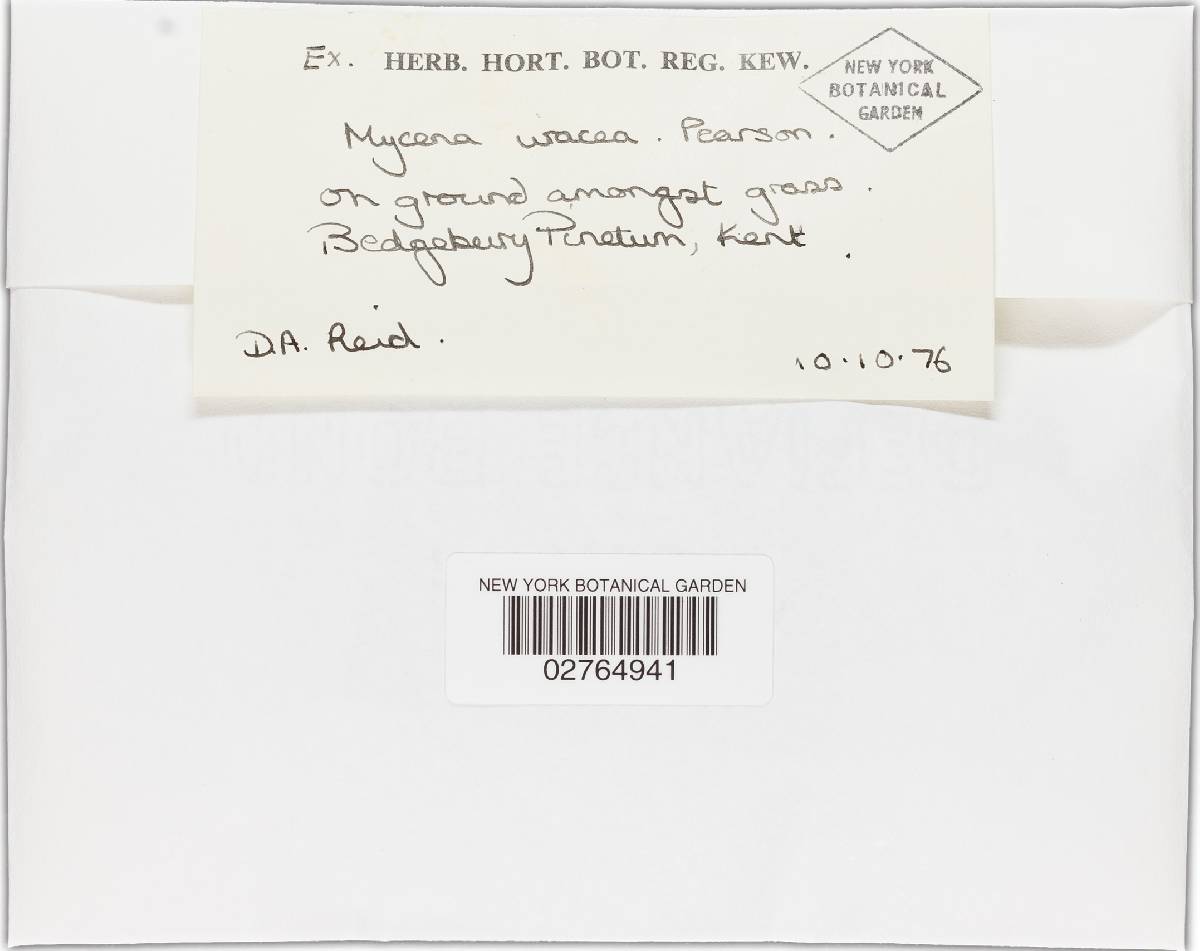 Ex. HERB. HORT. BOT. REG. KEW.
NEW YORK
BOTANICAL
GARDEN
Mycena uracea. Pearson.
on ground amongst grass.
Bedgebury Pinetum, Kent.
D.A. Reid.
10.10.76
NEW YORK BOTANICAL GARDEN
02764941